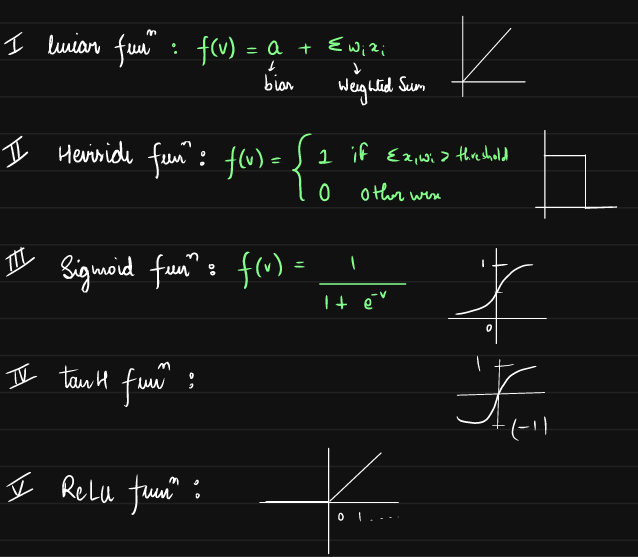 I linian funⁿ : f(v) = a + Σ wᵢxᵢ
bias weighted Sum
II Heviside funⁿ : f(v) = { 1 if Σ xᵢwᵢ > threshold
0 otherwise
III Sigmoid funⁿ : f(v) = 1 / 1 + e⁻ᵛ
1
0
IV tanH funⁿ :
1
(-1)
V ReLu funⁿ :
0 1 ....